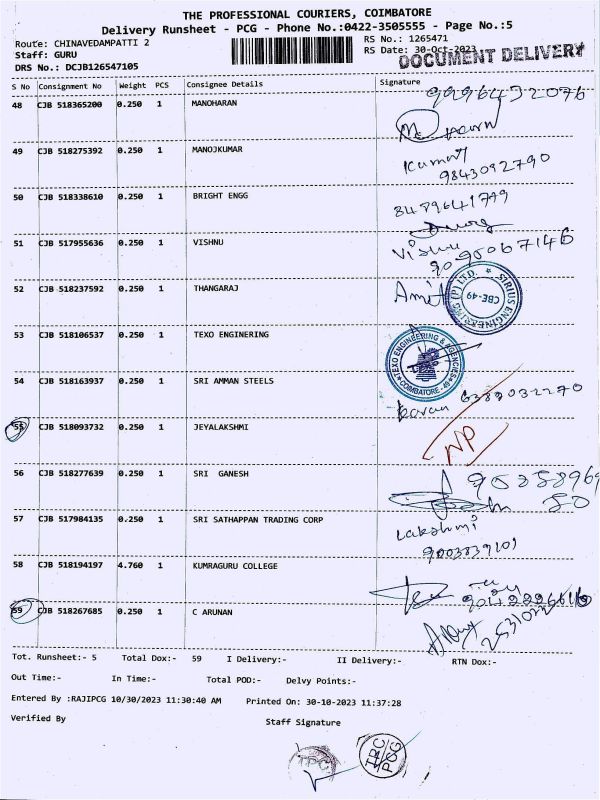 THE PROFESSIONAL COURIERS, COIMBATORE
Delivery Runsheet - PCG - Phone No.:0422-3505555 - Page No.:5
Route: CHINAVEDAMPATTI 2 RS No.: 1265471
Staff: GURU RS Date: 30-Oct-2023
DOCUMENT DELIVERY
DRS No.: DCJB126547105
S No Consignment No Weight PCS Consignee Details Signature
48 CJB 518365200 0.250 1 MANOHARAN
49 CJB 518275392 0.250 1 MANOJKUMAR
Kumar
9843092790
50 CJB 518338610 0.250 1 BRIGHT ENGG
51 CJB 517955636 0.250 1 VISHNU
Vishnu
9095067146
52 CJB 518237592 0.250 1 THANGARAJ
Amit
SIRIUS ENGINEERING (P) LTD. CBE-49
53 CJB 518106537 0.250 1 TEXO ENGINERING
TEXO ENGINEERING & AGENCIES COIMBATORE-49
54 CJB 518163937 0.250 1 SRI AMMAN STEELS
55 CJB 518093732 0.250 1 JEYALAKSHMI
NP
56 CJB 518277639 0.250 1 SRI GANESH
57 CJB 517984135 0.250 1 SRI SATHAPPAN TRADING CORP
Lakshmi
58 CJB 518194197 4.760 1 KUMRAGURU COLLEGE
59 CJB 518267685 0.250 1 C ARUNAN
Tot. Runsheet:- 5 Total Dox:- 59 I Delivery:- II Delivery:- RTN Dox:-
Out Time:- In Time:- Total POD:- Delvy Points:-
Entered By :RAJIPCG 10/30/2023 11:30:40 AM Printed On: 30-10-2023 11:37:28
Verified By Staff Signature
TPC
TPC
PCG